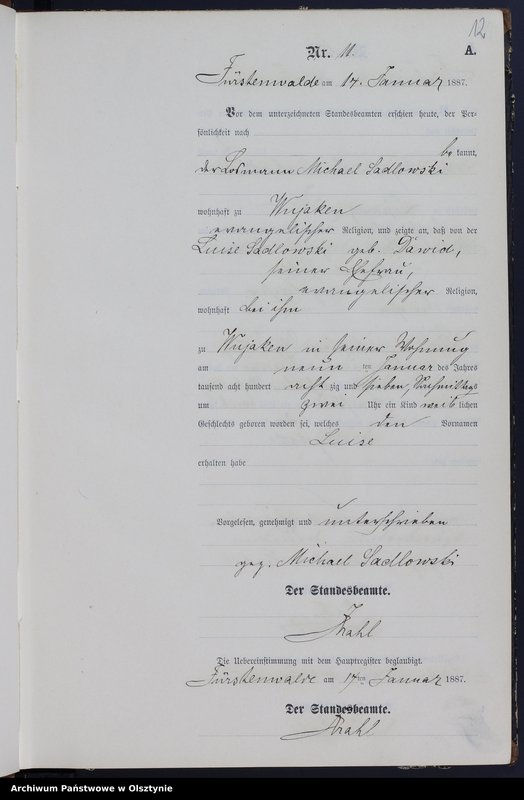 12
Nr. 11.
A.
Fürstenwalde am 17. Januar 1887.
Vor dem unterzeichneten Standesbeamten erschien heute, der Per-
sönlichkeit nach
be kannt,
der Losmann Michael Sadlowski
wohnhaft zu Wujaken
evangelischer Religion, und zeigte an, daß von der
Luise Sadlowski geb. Dawid,
seiner Ehefrau,
evangelischer Religion,
wohnhaft bei ihm
zu Wujaken in seiner Wohnung
am neun ten Januar des Jahres
tausend acht hundert acht zig und sieben, Nachmittags
um zwei Uhr ein Kind weib lichen
Geschlechts geboren worden sei, welches den Vornamen
Luise
erhalten habe
Vorgelesen, genehmigt und unterschrieben
gez. Michael Sadlowski
Der Standesbeamte.
Die Uebereinstimmung mit dem Hauptregister beglaubigt.
Fürstenwalde am 17ten Januar 1887.
Der Standesbeamte.
Archiwum Państwowe w Olsztynie